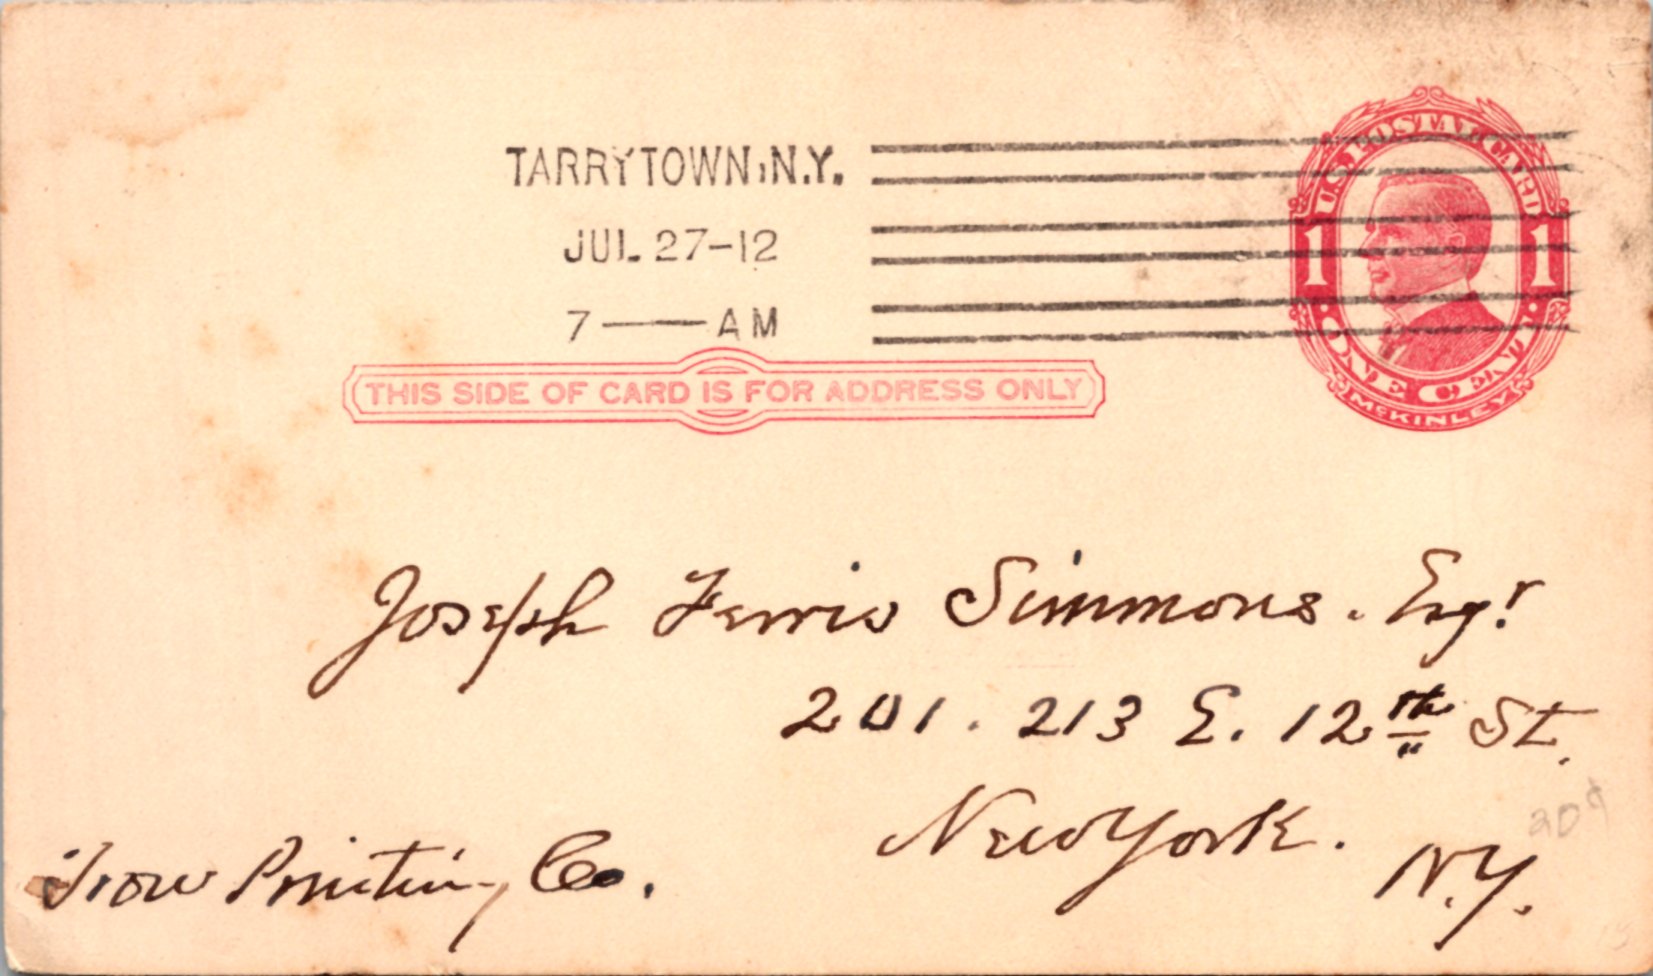 TARRYTOWN, N.Y.
JUL 27-12
7 — AM
U.S. POSTAL CARD
1 1
ONE CENT
McKINLEY
THIS SIDE OF CARD IS FOR ADDRESS ONLY
Joseph Ferris Simmons. Esqr
201. 213 E. 12th St.
New York.
N.Y.
20¢
Trow Printing Co.